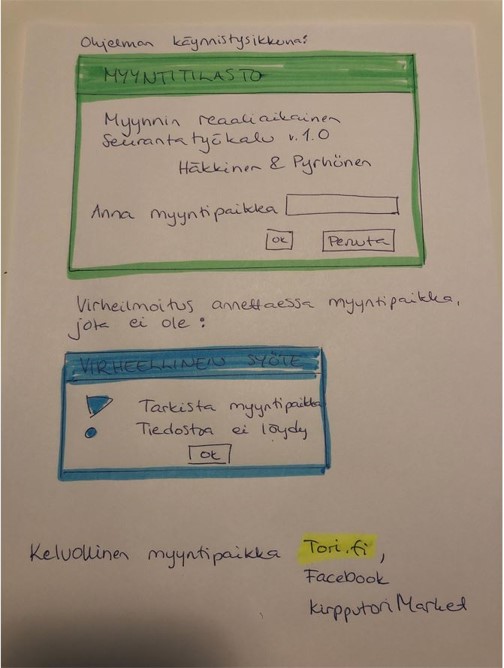 Ohjelman käynnistysikkuna:
MYYNTITILASTO
Myynnin reaaliaikainen
Seurantatyökalu v.1.0
Häkkinen & Pyrhönen
Anna myyntipaikka
OK Peruuta
Virheilmoitus annettaessa myyntipaikka,
jota ei ole:
VIRHEELLINEN SYÖTE
Tarkista myyntipaikka
Tiedostoa ei löydy
OK
Kelvollinen myyntipaikka Tori.fi,
Facebook
Kirpputori Market